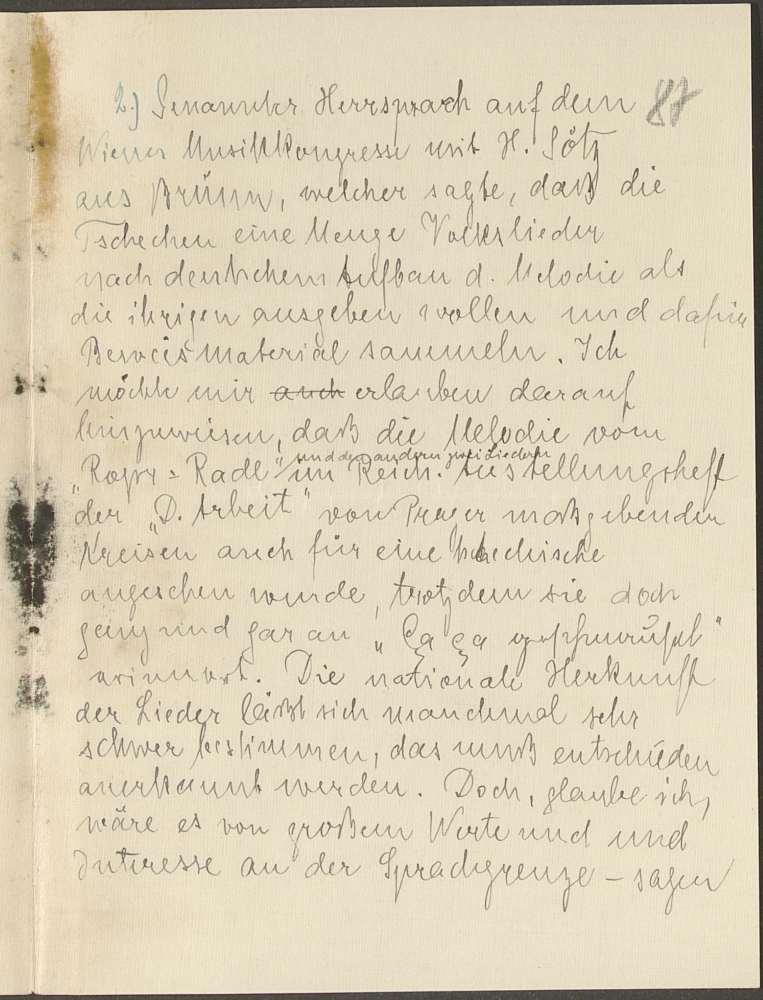 2.) Genannter Herr sprach auf dem 87
Wiener Musikkongresse mit H. Götz
aus Brünn, welcher sagte, daß die
Tschechen eine Menge Volkslieder
nach deutschem Aufbau d. Melodie als
die ihrigen ausgeben wollen und dafür
Beweismaterial sammeln. Ich
möchte mir auch erlauben darauf
hinzuweisen, daß die Melodie vom
und den andern zwei Liedern
Radl" im Reich. Ausstellungsheft
der „D. Arbeit" von Prager maßgebender
Kreisen auch für eine tschechische
angesehen wurde, trotzdem sie doch
ganz und gar an „Ça ça geschmauset"
erinnert. Die nationale Herkunft
der Lieder läßt sich manchmal sehr
schwer bestimmen, das muß entschieden
anerkannt werden. Doch, glaube ich,
wäre es von großem Werte und und
Interesse an der Sprachgrenze – sagen